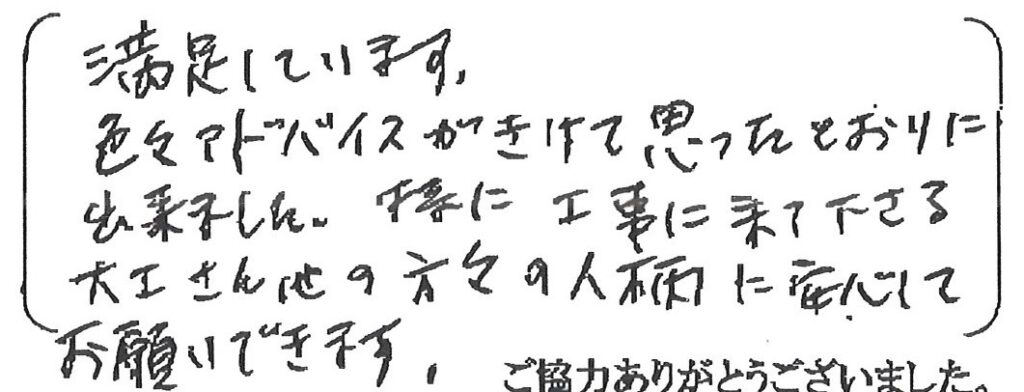 満足しています。
色々アドバイスがきけて思ったとおりに
出来ました。特に工事に来て下さる
大工さん他の方々の人柄に安心して
お願いできます。
ご協力ありがとうございました。